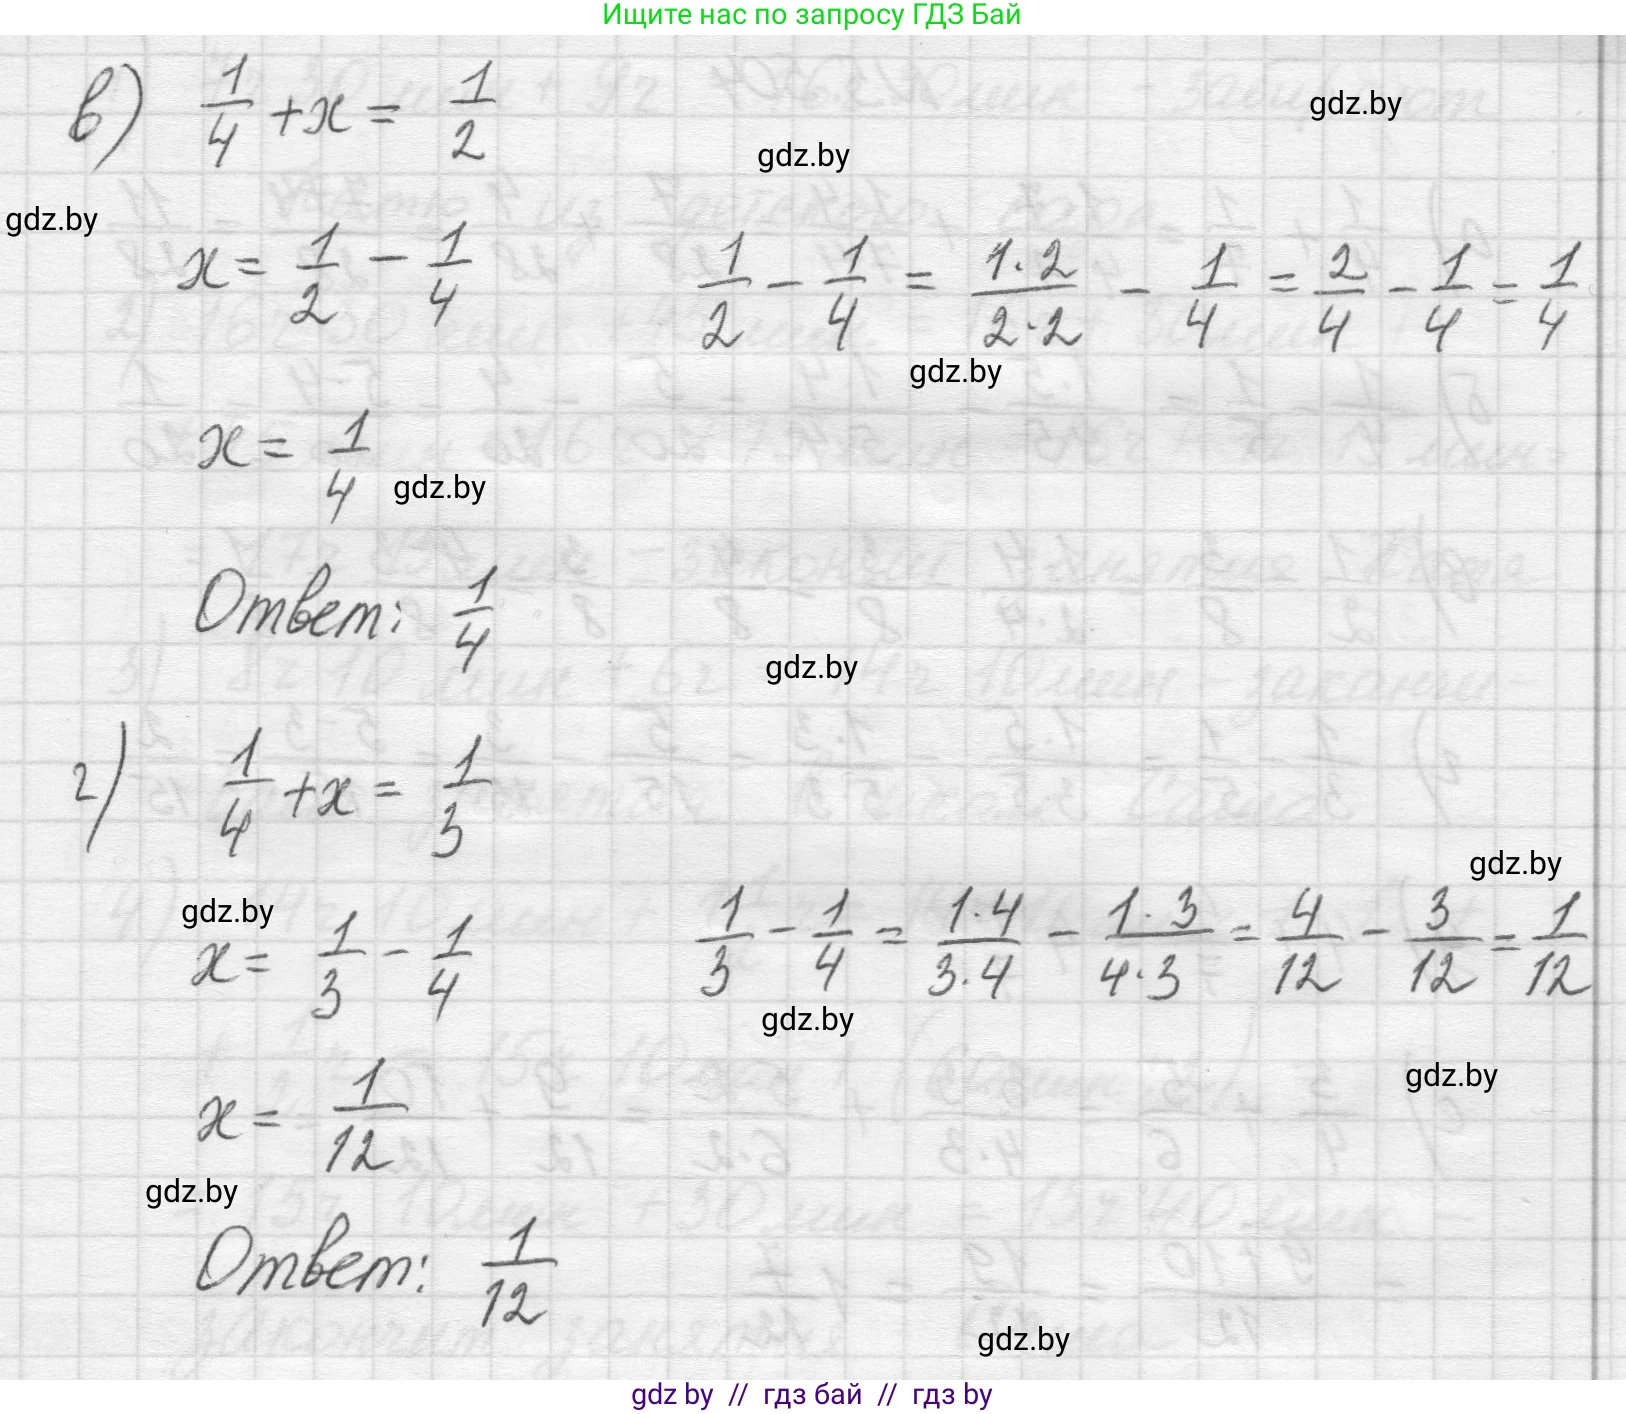 Ищите нас по запросу ГДЗ Бай
в) 1/4 + x = 1/2
gdz.by
gdz.by
gdz.by
x = 1/2 - 1/4
1/2 - 1/4 = 1·2/2·2 - 1/4 = 2/4 - 1/4 = 1/4
gdz.by
x = 1/4
gdz.by
Ответ: 1/4
gdz.by
г) 1/4 + x = 1/3
gdz.by
gdz.by
x = 1/3 - 1/4
1/3 - 1/4 = 1·4/3·4 - 1·3/4·3 = 4/12 - 3/12 = 1/12
gdz.by
gdz.by
x = 1/12
gdz.by
Ответ: 1/12
gdz.by
gdz by // гдз бай // гдз by